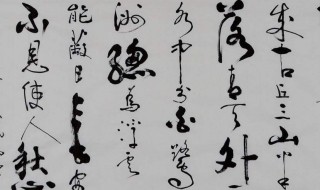 成古丘三山半
落青天外二
水中分白鷺
洲總為浮雲
能蔽日長安
不見使人愁